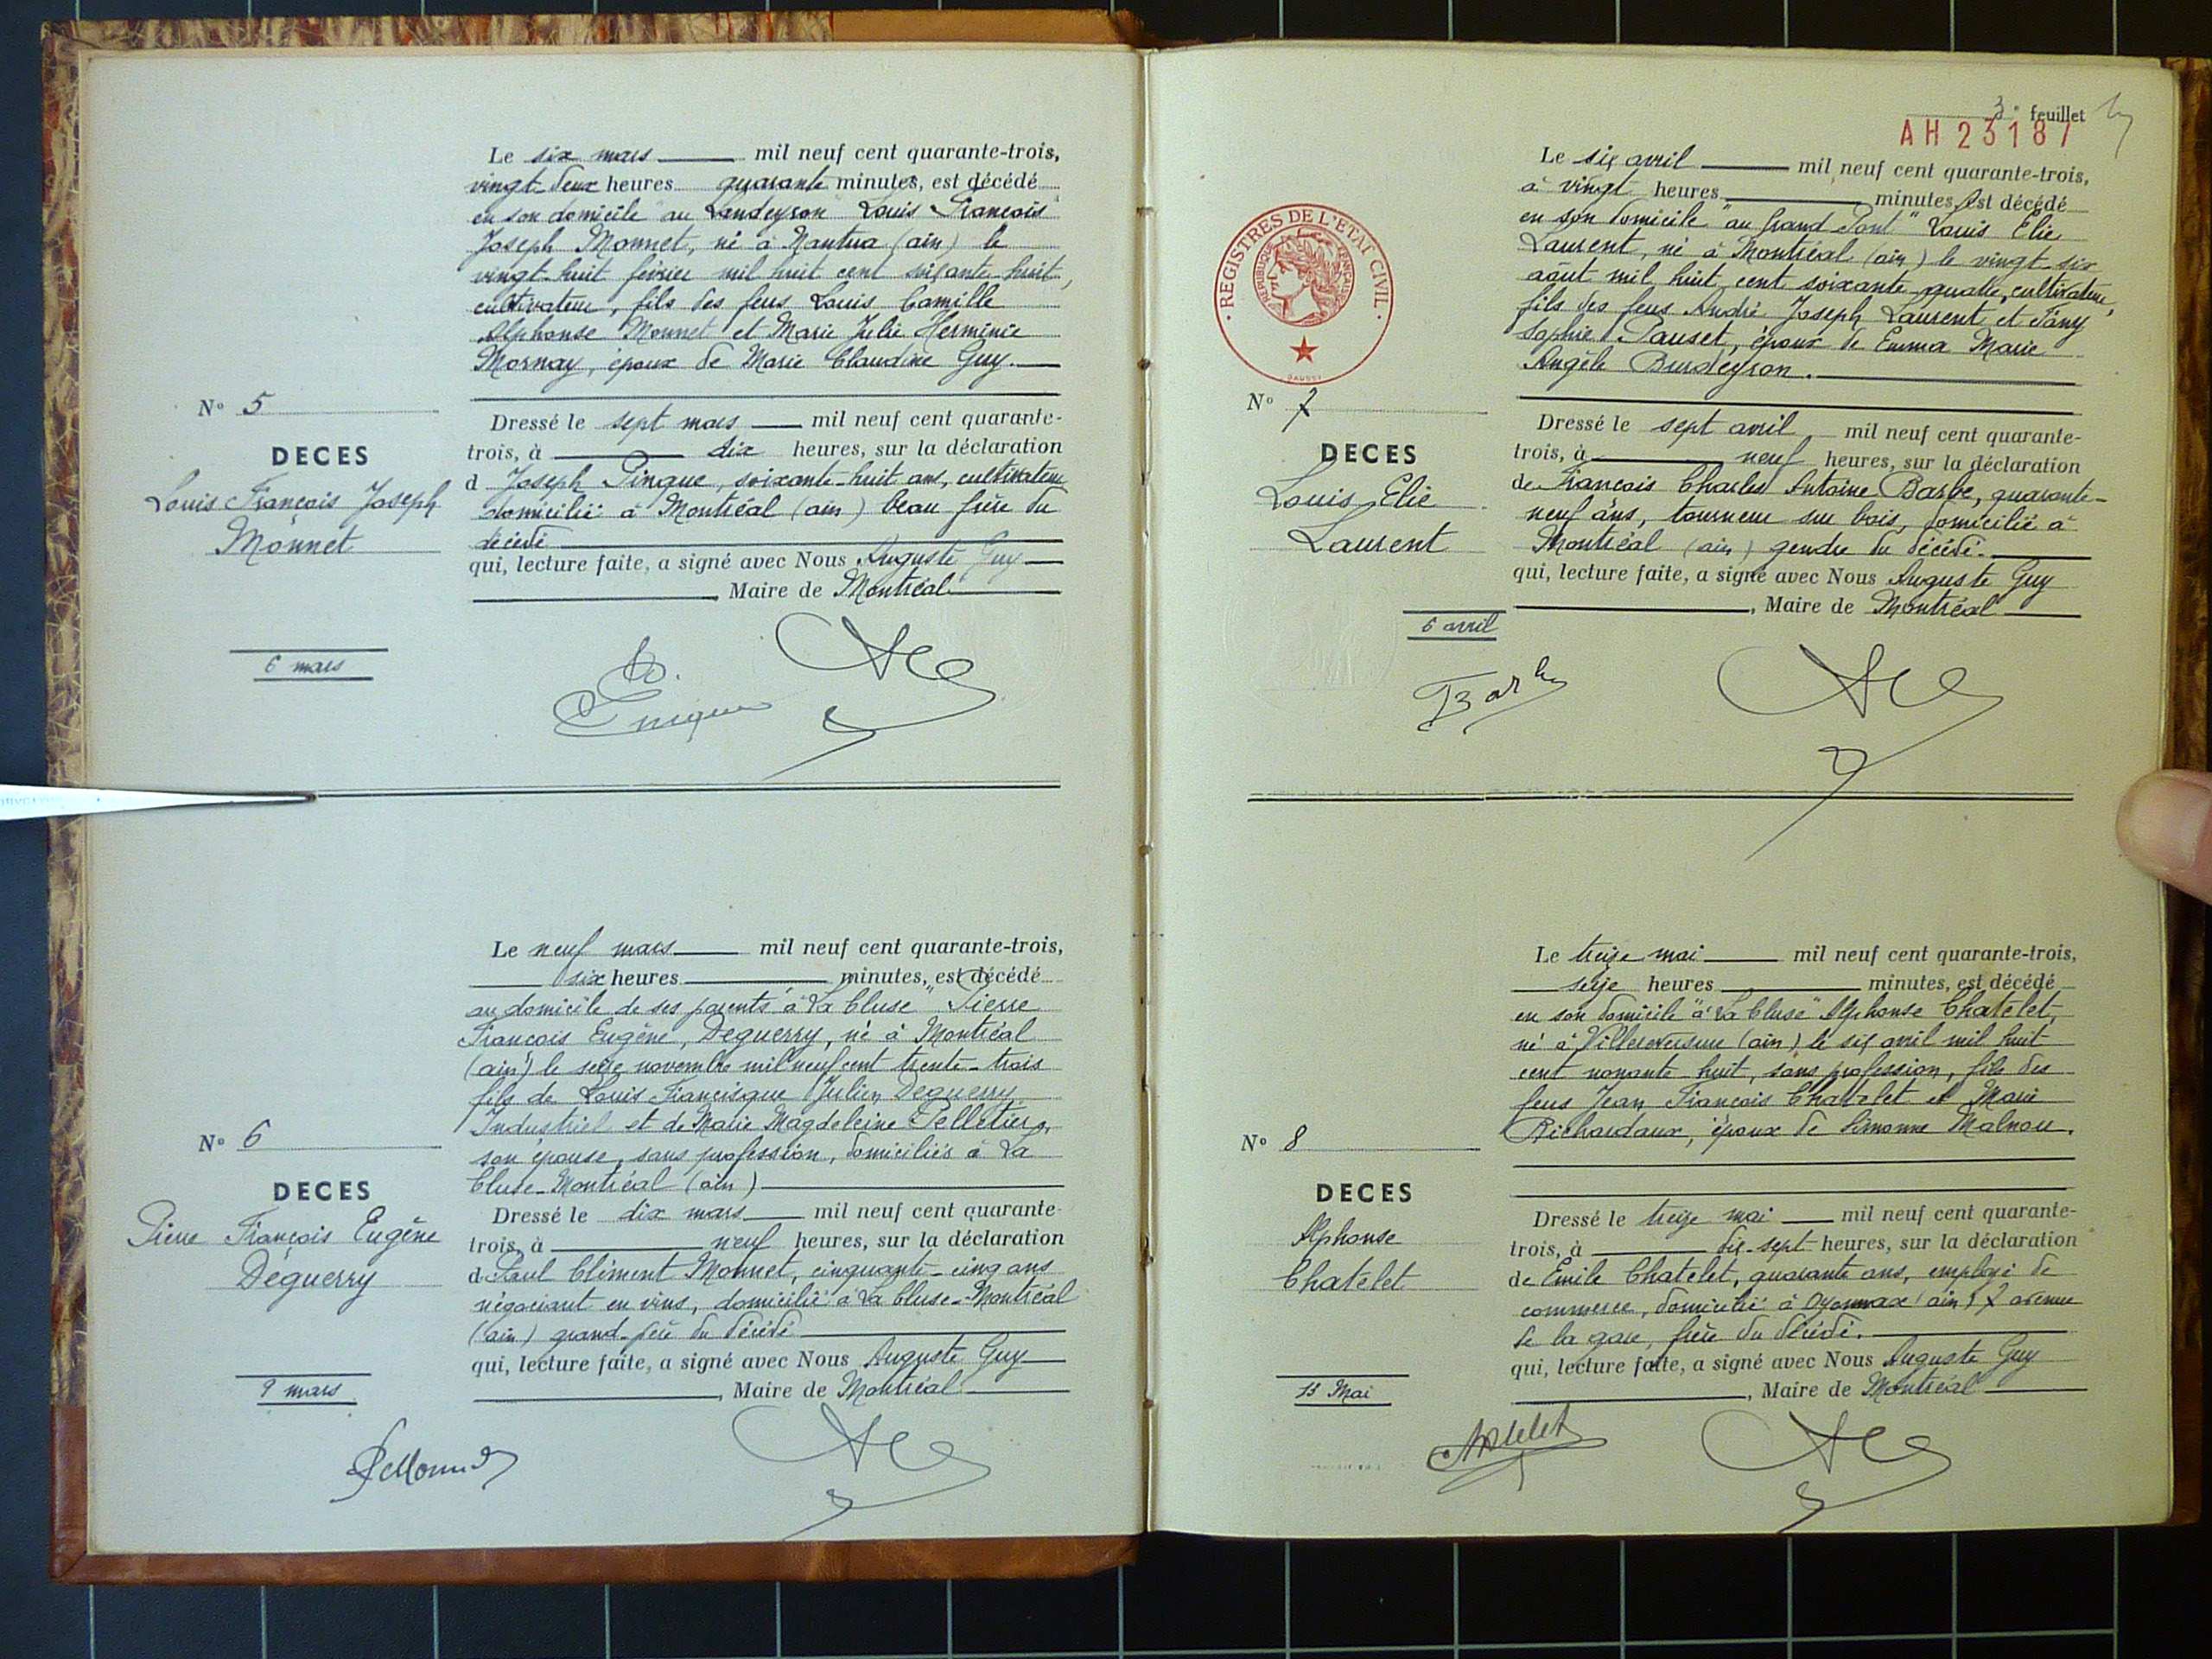 Le six mars mil neuf cent quarante-trois,
vingt-deux heures quarante minutes, est décédé
en son domicile "au Landeyron" Louis François
Joseph Monnet, né à Nantua (ain) le
vingt-huit février mil huit cent soixante-huit,
cultivateur, fils des feus Louis Camille
Alphonse Monnet et Marie Julie Herminie
Mornay, époux de Marie Claudine Guy.
N° 5
DECES
Louis François Joseph
Monnet
6 mars
Dressé le sept mars mil neuf cent quarante-
trois, à dix heures, sur la déclaration
d Joseph Pingue, soixante-huit ans, cultivateur
domicilié à Montréal (ain) beau frère du
décédé
qui, lecture faite, a signé avec Nous Auguste Guy
, Maire de Montréal
Le neuf mars mil neuf cent quarante-trois,
six heures minutes, est décédé
au domicile de ses parents "à La Cluse" Pierre
François Eugène, Deguerry, né à Montréal
(ain) le seize novembre mil neuf cent trente-trois
fils de Louis Francisque Julien Deguerry
Industriel et de Marie Magdeleine Pelletier,
son épouse, sans profession, domiciliés à La
Cluse-Montréal (ain)
N° 6
DECES
Pierre François Eugène
Déguerry
9 mars
Dressé le dix mars mil neuf cent quarante-
trois, à neuf heures, sur la déclaration
d Paul Clément Monnet, cinquante-cinq ans
négociant en vins, domicilié à La Cluse-Montréal
(ain) grand-père du décédé
qui, lecture faite, a signé avec Nous Auguste Guy
, Maire de Montréal
3e feuillet
AH 23187
REGISTRES DE L'ETAT CIVIL
REPUBLIQUE FRANÇAISE
Le six avril mil neuf cent quarante-trois,
à vingt heures minutes, est décédé
en son domicile "au Grand Pont" Louis Elie
Laurent, né à Montréal (ain) le vingt-six
août mil huit cent soixante-quatre, cultivateur,
fils des feus André Joseph Laurent et Fany
Sophie Pauset, époux de Emma Marie
Angèle Burdeyron.
N° 7
DECES
Louis Elie
Laurent
6 avril
Dressé le sept avril mil neuf cent quarante-
trois, à neuf heures, sur la déclaration
de François Charles Antoine Barbe, quarante-
neuf ans, tourneur sur bois, domicilié à
Montréal (ain) gendre du décédé.
qui, lecture faite, a signé avec Nous Auguste Guy
, Maire de Montréal
Barbe
Le treize mai mil neuf cent quarante-trois,
seize heures minutes, est décédé
en son domicile "à La Cluse" Alphonse Chatelet,
né à Villereversure (ain) le six avril mil huit
cent nonante-huit, sans profession, fils des
feus Jean François Chatelet et Marie
Richardaux, époux de Simonne Malnou.
N° 8
DECES
Alphonse
Chatelet
13 Mai
Dressé le treize mai mil neuf cent quarante-
trois, à dix-sept heures, sur la déclaration
de Emile Chatelet, quarante ans, employé de
commerce, domicilié à Oyonnax (ain) 7 avenue
de la gare, frère du décédé.
qui, lecture faite, a signé avec Nous Auguste Guy
, Maire de Montréal